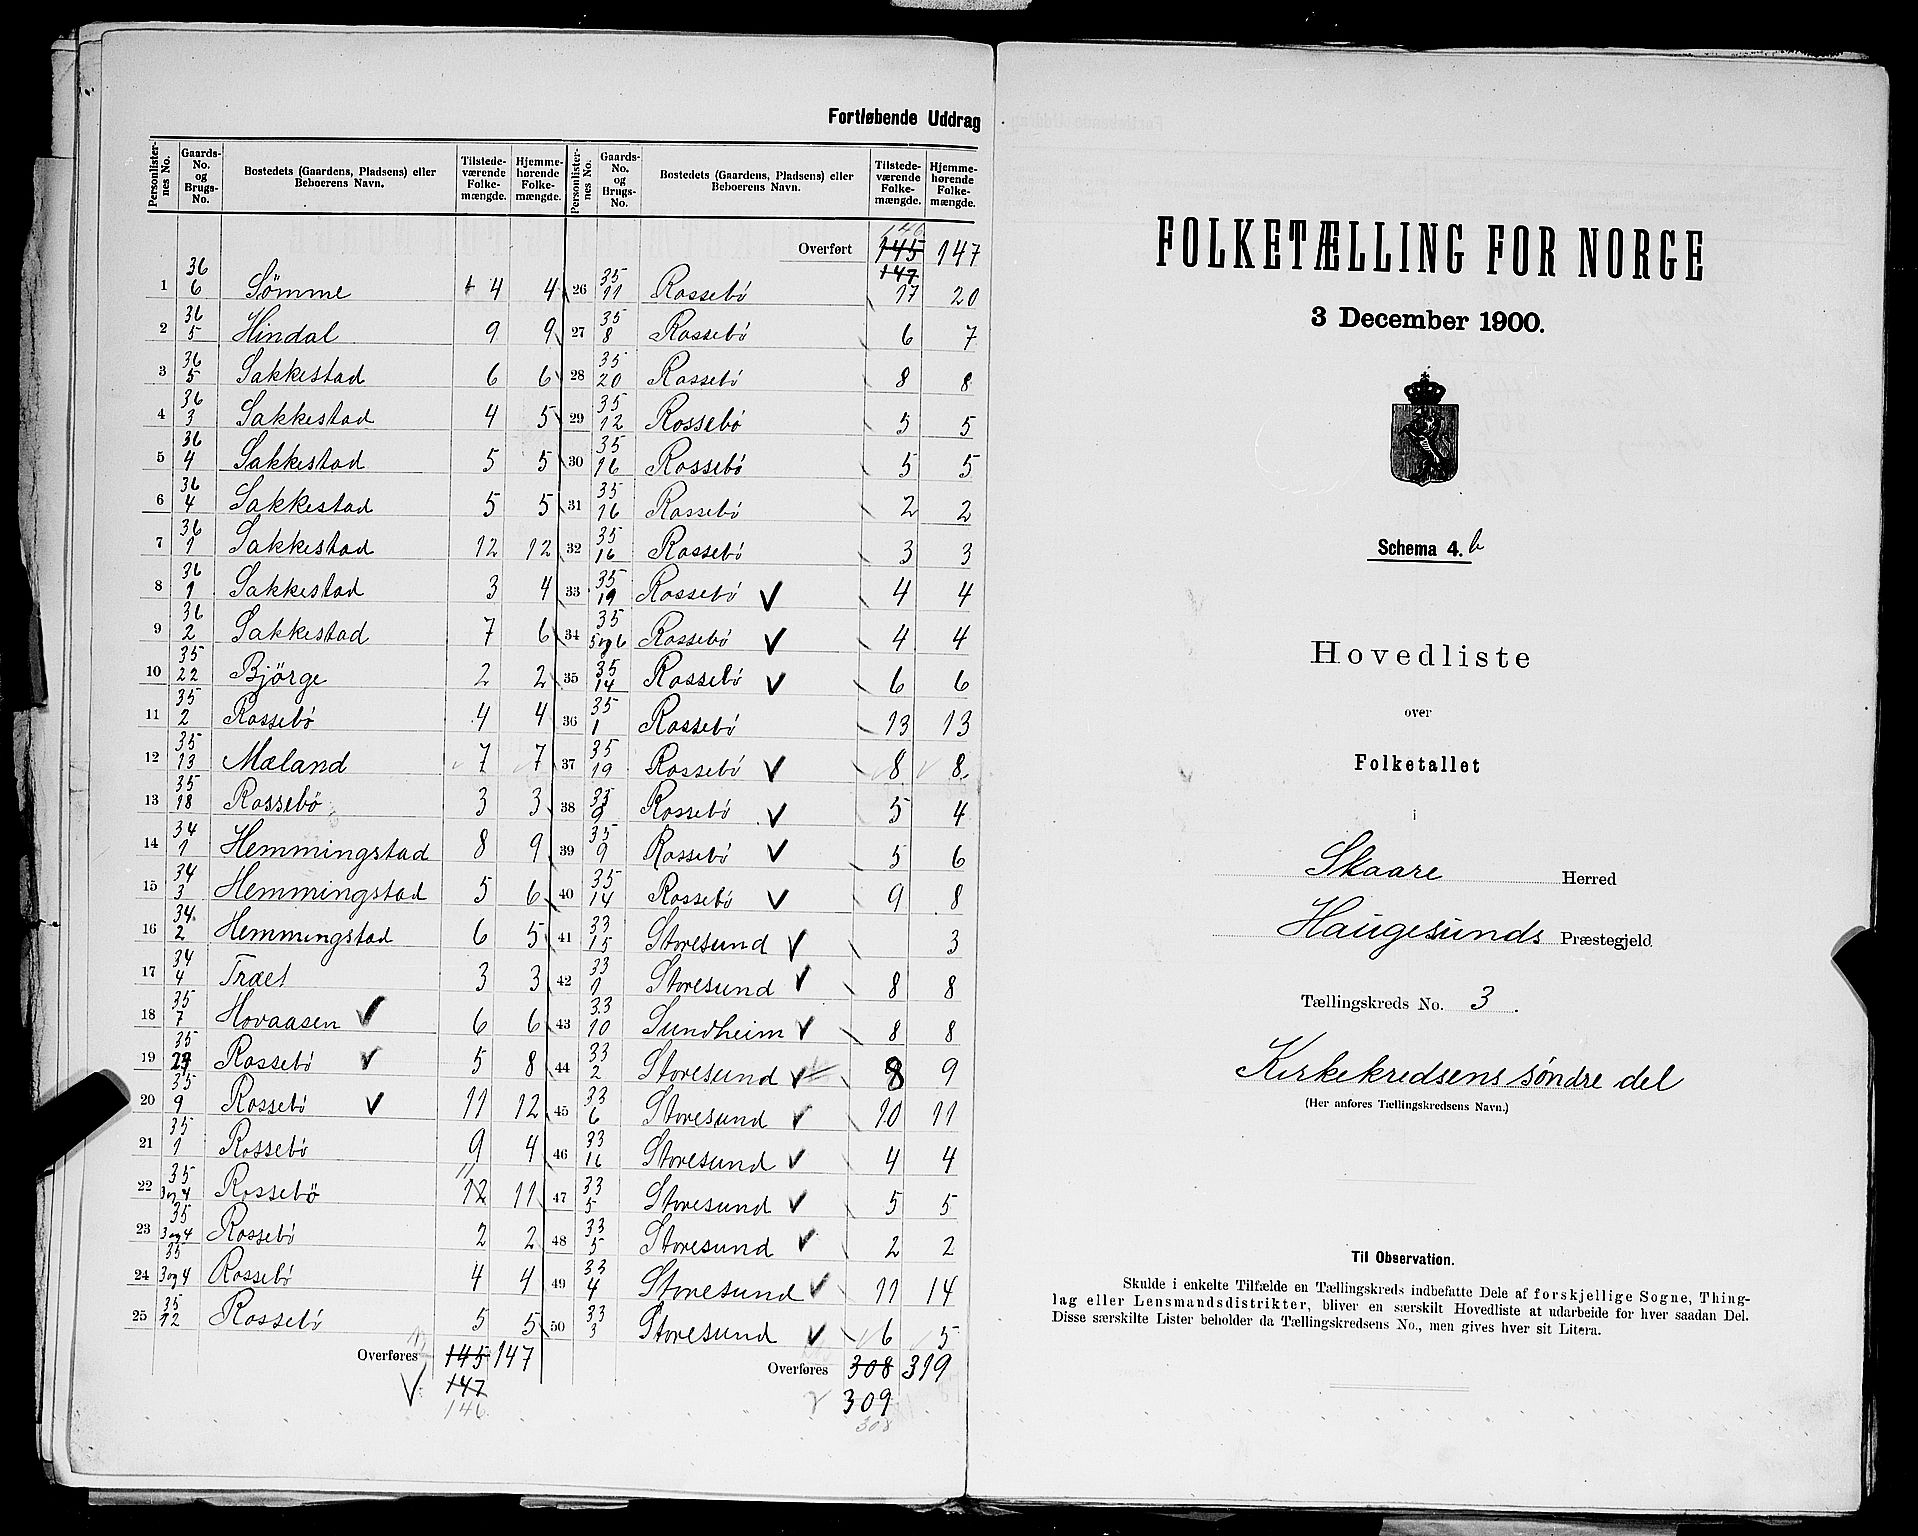 Fortløbende Uddrag
Personlisternes No. | Gaards-No. og Brugs-No. | Bostedets (Gaardens, Pladsens) eller Beboerens Navn. | Tilstedeværende Folkemængde. | Hjemmehørende Folkemængde.
1 36/6 Sømme 4 4
2 36/5 Hindal 9 9
3 36/5 Sakkestad 6 6
4 36/3 Sakkestad 4 5
5 36/4 Sakkestad 5 5
6 36/4 Sakkestad 5 5
7 36/1 Sakkestad 12 12
8 36/1 Sakkestad 3 4
9 36/2 Sakkestad 7 6
10 35/22 Bjørge 2 2
11 35/2 Rossebø 4 4
12 35/13 Mæland 7 7
13 35/18 Rossebø 3 3
14 34/1 Hemmingstad 8 9
15 34/3 Hemmingstad 5 6
16 34/2 Hemmingstad 6 5
17 34/4 Træet 3 3
18 35/7 Hovaasen V 6 6
19 35 Rossebø V 5 8
20 35/9 Rossebø V 11 12
21 35/1 Rossebø 9 4
22 35/3 og 4 Rossebø 11 12 11
23 35/3 og 4 Rossebø 2 2
24 35/3 og 4 Rossebø 4 4
25 35/12 Rossebø 5 5
Overføres 145 147
V 147
146
Personlisternes No. | Gaards-No. og Brugs-No. | Bostedets (Gaardens, Pladsens) eller Beboerens Navn. | Tilstedeværende Folkemængde. | Hjemmehørende Folkemængde.
146
Overført 145 147
147
26 35/11 Rossebø 17 20
27 35/8 Rossebø 6 7
28 35/20 Rossebø 8 8
29 35/12 Rossebø 5 5
30 35/16 Rossebø 5 5
31 35/16 Rossebø 2 2
32 35/16 Rossebø 3 3
33 35/19 Rossebø V 4 4
34 35/5 og 6 Rossebø V 4 4
35 35/14 Rossebø V 6 6
36 35/1 Rossebø 13 13
37 35/19 Rossebø V 8 8
38 35/9 Rossebø V 5 4
39 35/9 Rossebø V 5 6
40 35/14 Rossebø V 9 8
41 33/15 Storesund V 3
42 33/1 Storesund V 8 8
43 33/10 Sundheim V 8 8
44 33/2 Storesund V 8 9
45 33/6 Storesund V 10 11
46 33/16 Storesund V 4 4
47 33/5 Storesund V 5 5
48 33/5 Storesund V 2 2
49 33/4 Storesund V 11 14
50 33/3 Storesund V 6 5
Overføres 308 319
309
308
FOLKETÆLLING FOR NORGE
3 December 1900.
Schema 4. b
Hovedliste
over
Folketallet
i
Skaare Herred
Haugesunds Præstegjeld
Tællingskreds No. 3.
Kirkekredsens søndre del
(Her anføres Tællingskredsens Navn.)
Til Observation.
Skulde i enkelte Tilfælde en Tællingskreds indbefatte Dele af forskjellige Sogne, Thing-
lag eller Lensmandsdistrikter, bliver en særskilt Hovedliste at udarbeide for hver saadan Del.
Disse særskilte Lister beholder da Tællingskredsens No., men gives hver sit Litera.